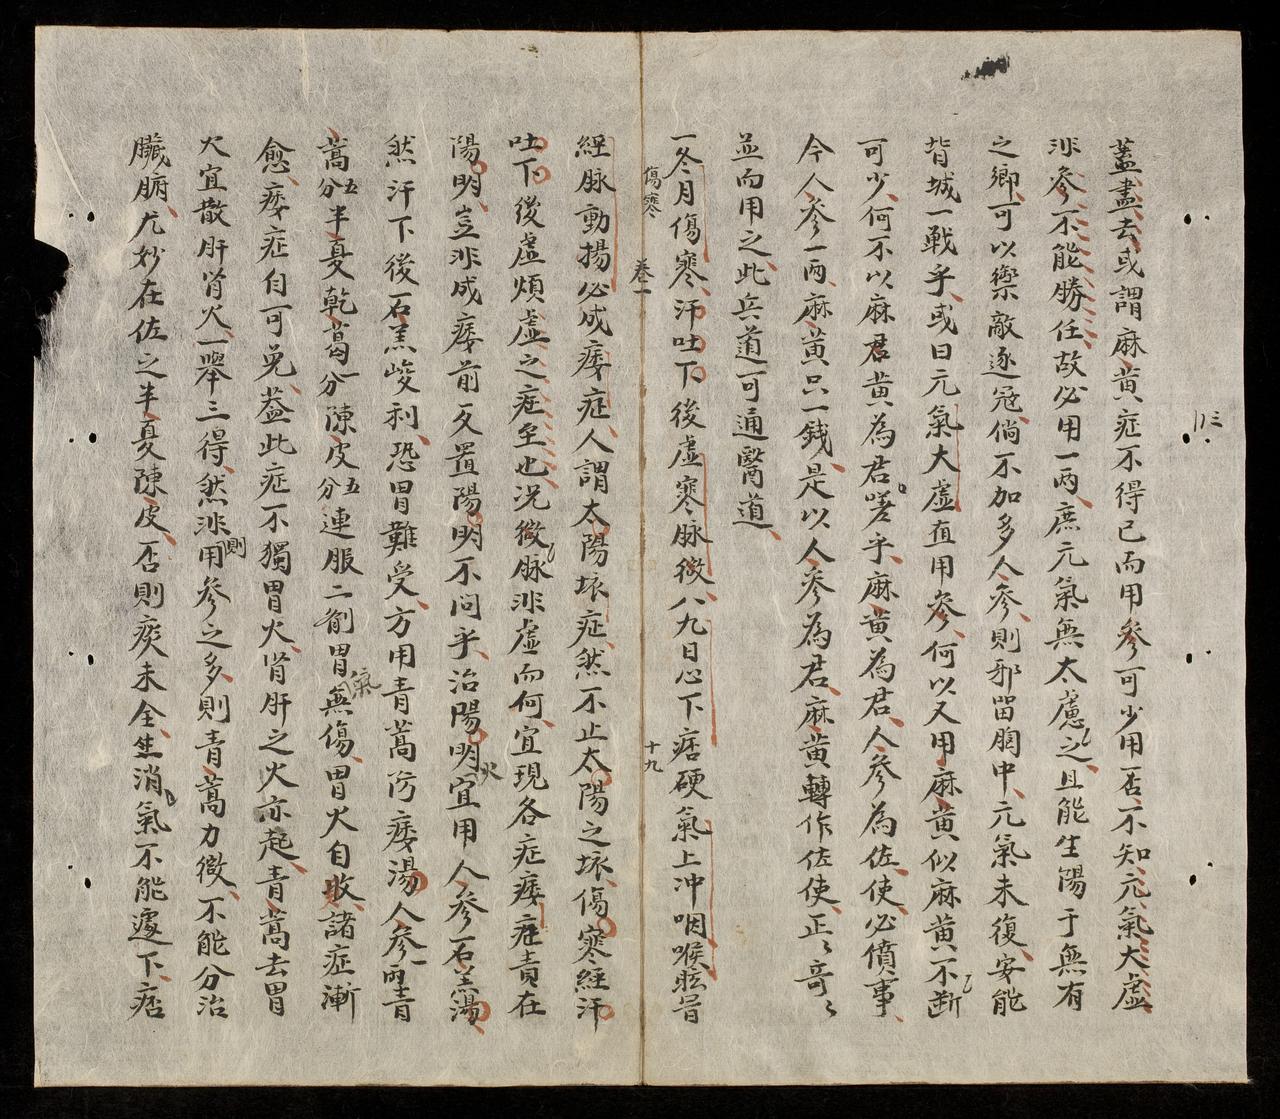 蓋盡去或謂麻黃症不得已而用參可少用否不知元氣大虛
非參不能勝任故必用一兩庶元氣無太慮之且能生陽于無有
之鄉可以禦敵逐寇倘不加多人參則邪留胸中元氣未復安能
背城一戰乎或曰元氣大虛直用參何以又用麻黃似麻黃不斷
可少何不以麻君黃為君嗟乎麻黃為君人參為佐使必僨事
今人參一兩麻黃只一錢是以人參為君麻黃轉作佐使正〻奇〻
並而用之此兵道可通醫道
一冬月傷寒汗吐下後虛寒脉微八九日心下痞硬氣上冲咽喉眩冒
傷寒 卷一 十九
經脉動揚必成痿症人謂太陽坏症然不止太陽之坏傷寒經汗
吐下後虛煩虛之症至也況微脉非虛而何宜現各症痿症責在
陽明豈非成痿前一反置陽明不問乎治陽明火宜用人參石羔湯
然汗下後石羔峻利恐胃難受方用青蒿防痿湯人參一兩青
蒿五分半夏乾葛一分陳皮五分連服二劑胃氣無傷胃火自散諸症漸
愈痿症自可免蓋此症不獨胃火肖肝之火亦起青蒿去胃
火宜散肝肖火一舉三得然非用則參之多則青蒿力微不能分治
臟腑尤妙在佐之半夏陳皮否則痰未全生消氣不能遽下痞